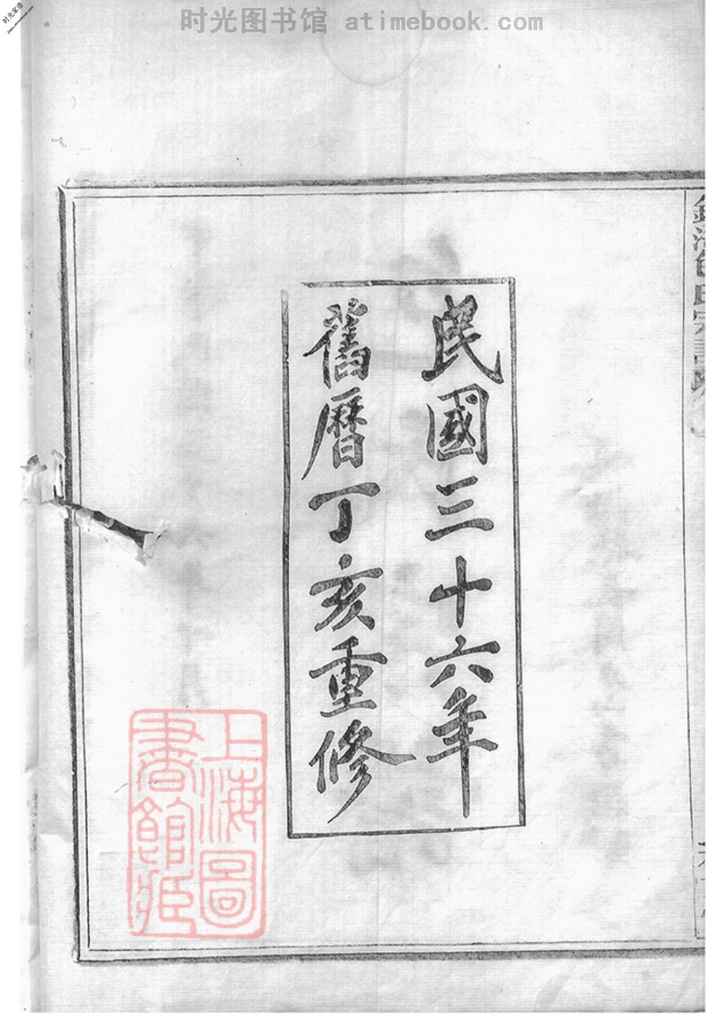 时光图书馆 atimebook.com
民國三十六年
舊曆丁亥重修
上海圖
書館藏